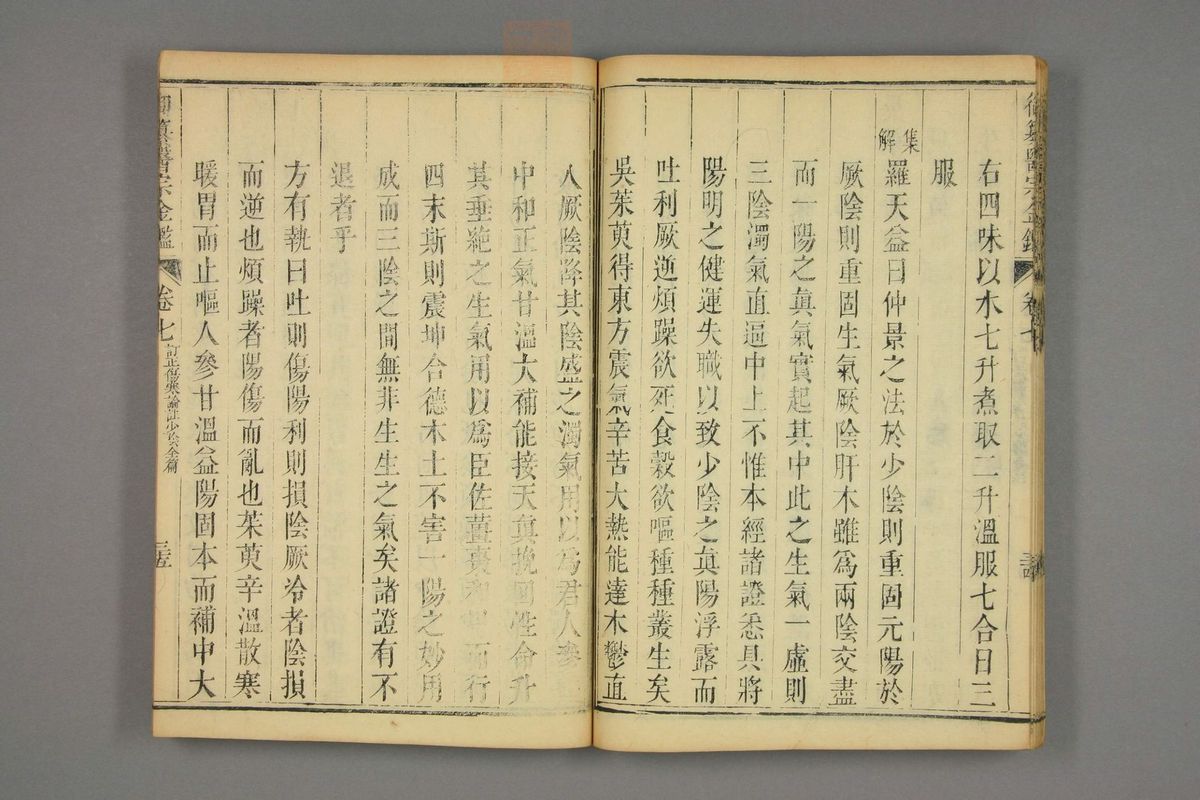 右四味以水七升煮取二升溫服七合日三
服
集解
羅天益曰仲景之法於少陰則重固元陽於
厥陰則重固生氣厥陰肝木雖爲兩陰交盡
而一陽之眞氣實起其中此之生氣一虛則
三陰濁氣直逼中上不惟本經諸證悉具將
陽明之健運失職以致少陰之眞陽浮露而
吐利厥逆煩躁欲死食穀欲嘔種種叢生矣
吳茱萸得東方震氣辛苦大熱能達木鬱直
入厥陰降其陰盛之濁氣用以爲君人參
中和正氣甘溫大補能接天眞挽回性命升
其垂絶之生氣用以爲臣佐薑棗和胃而行
四末斯則震坤合德木土不害一陽之妙用
成而三陰之間無非生生之氣矣諸證有不
退者乎
方有執曰吐則傷陽利則損陰厥冷者陰損
而逆也煩躁者陽傷而亂也茱萸辛溫散寒
暖胃而止嘔人參甘溫益陽固本而補中大
御纂醫宗金鑑
卷七
訂正傷寒論註少陰全篇
三五